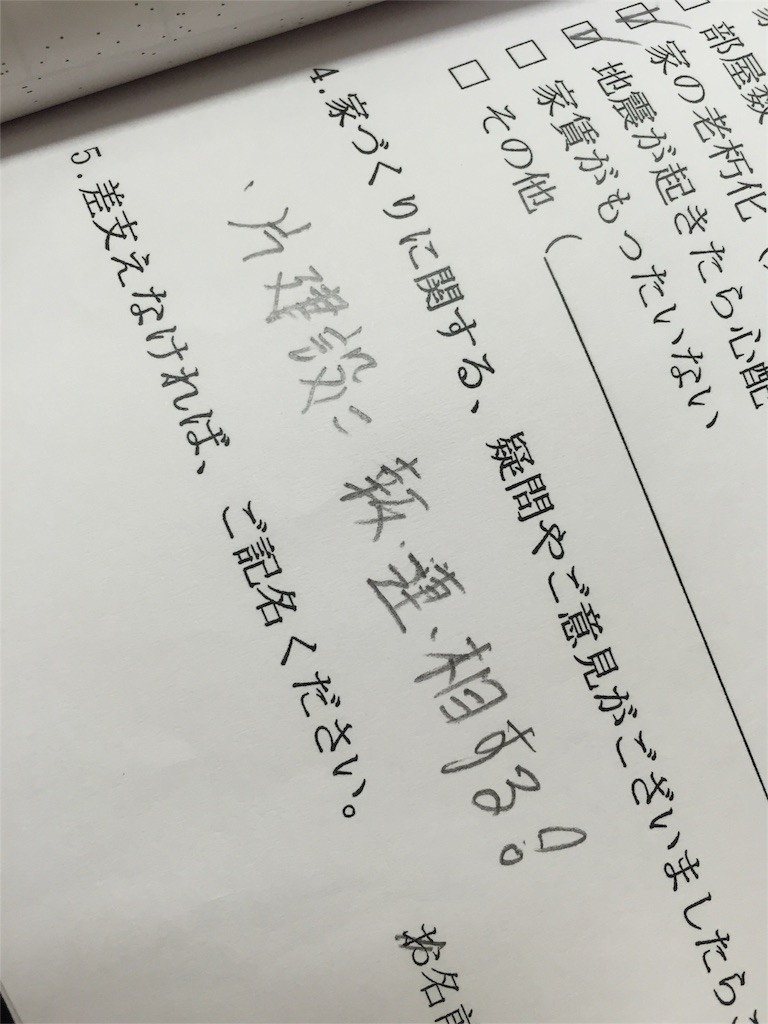 部屋数
家の老朽化（
地震が起きたら心配
家賃がもったいない
その他（
4. 家づくりに関する、疑問やご意見がございましたら
建設に 軟 相する!
5. 差支えなければ、ご記名ください。
お名前